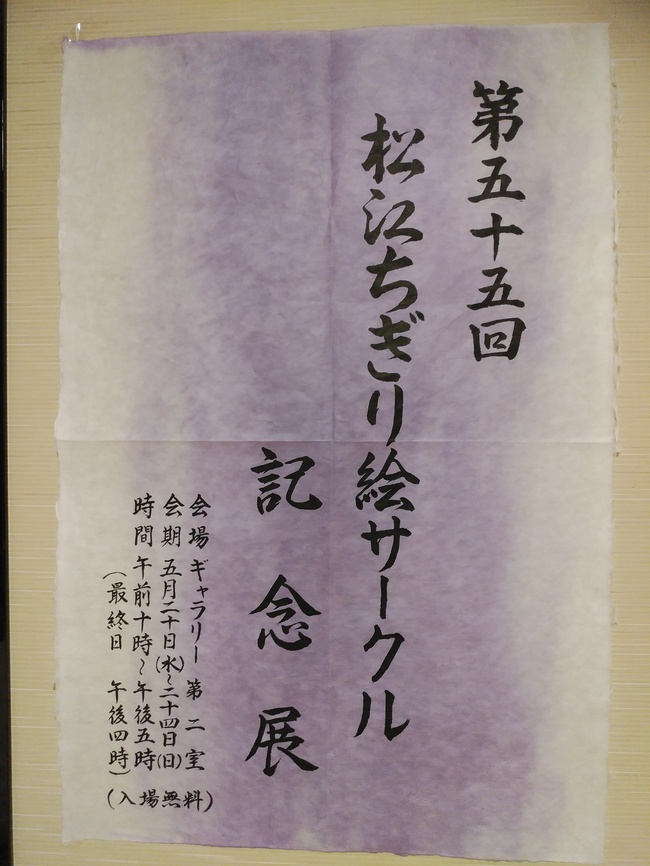 第五十五回
松江ちぎり絵サークル
記念展
会場 ギャラリー 第二室
会期 五月二十日(水)~二十四日(日)
時間 午前十時~午後五時
(最終日 午後四時)
(入場無料)